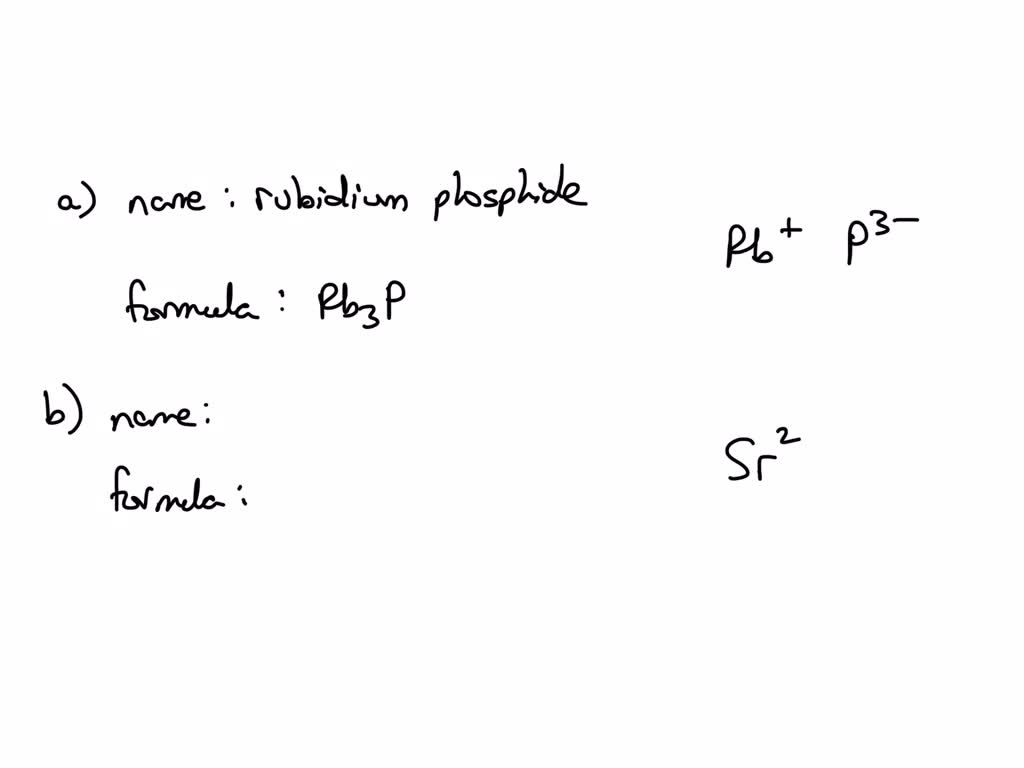 a) name : rubidium phosphide
Rb⁺ P³⁻
formula : Rb₃P
b) name :
Sr²
formula :